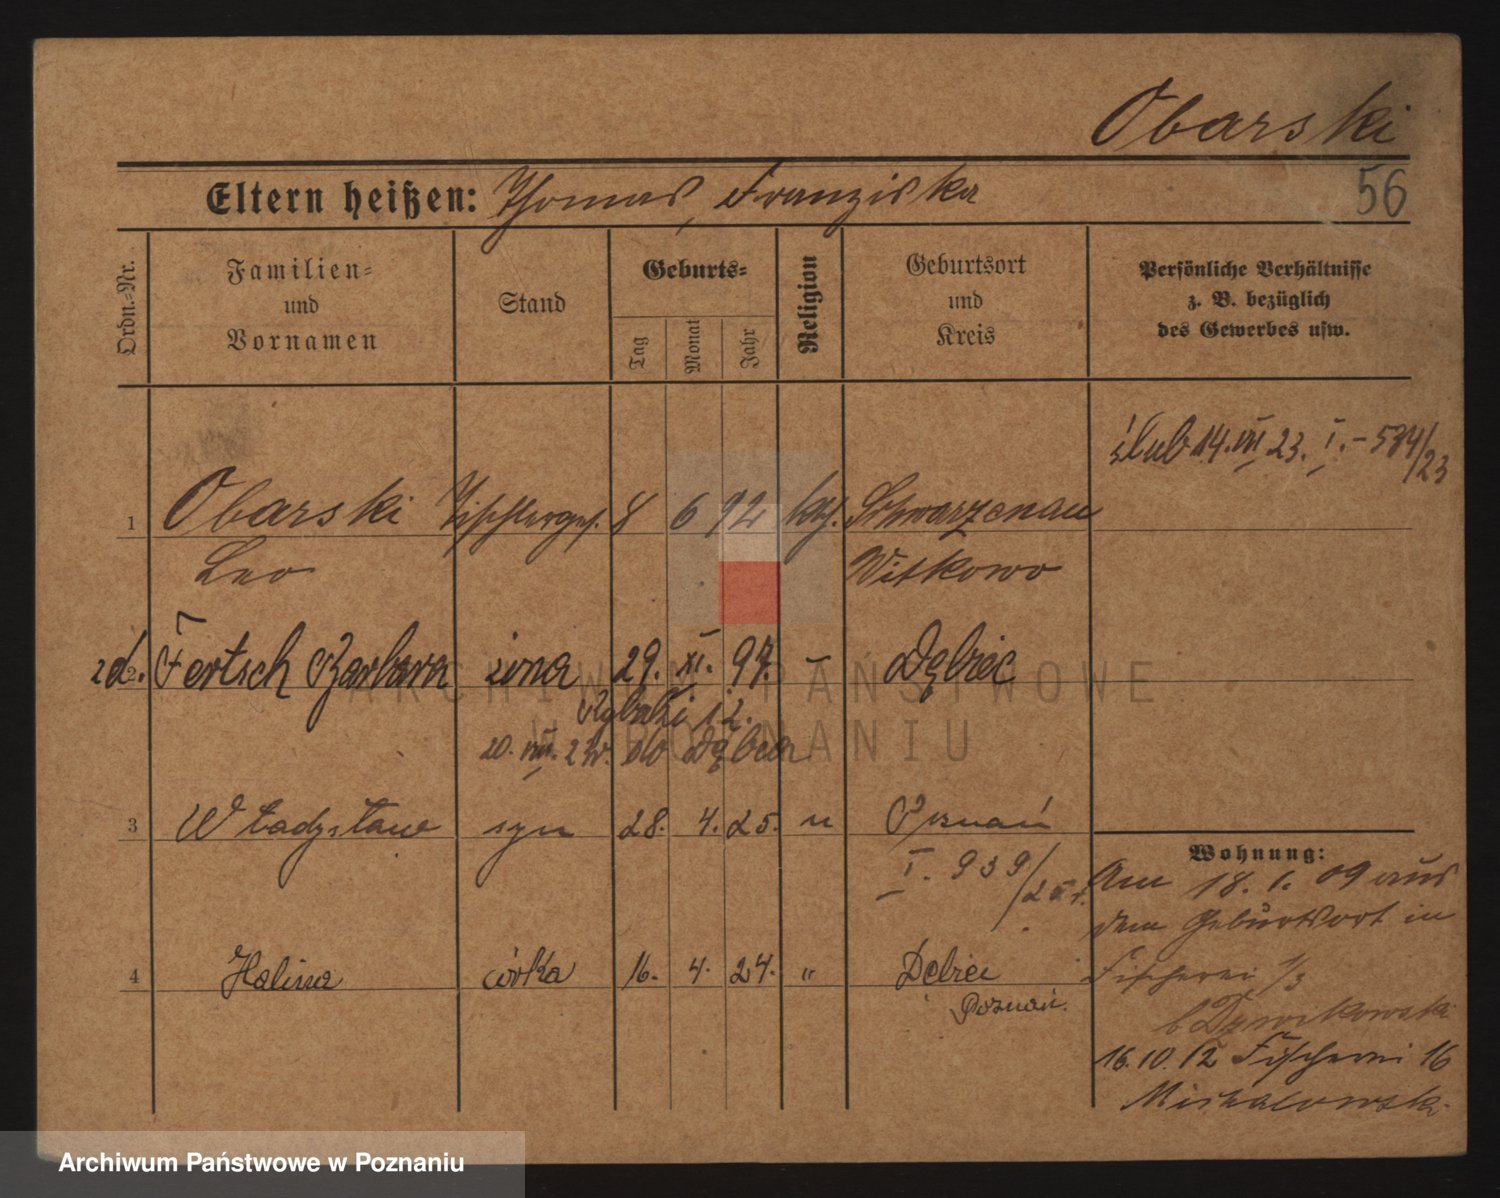 Obarski
Eltern heißen: Thomas, Franziska
56
Ordn.-Nr.
Familien- und Vornamen
Stand
Geburts-
Tag
Monat
Jahr
Religion
Geburtsort und Kreis
Persönliche Verhältnisse
z. B. bezüglich
des Gewerbes usw.
ślub 14.VIII.23. I.-574/23
1 Obarski Tischlerges. 8 6 92 kath. Schwarzenau
Leo Witkowo
2 zd. Fertsch Barbara żona 29. XI. 97. – Dębiec
Rybaki 12.
20. VIII. 24. do Dębca
3 Władysław syn 28. 4. 25. " Poznań
I. 939/25 r.
4 Halina córka 16. 4. 24. " Dębiec
Poznań.
Wohnung:
Am 18. 1. 09 aus
dem Geburtsort in
Fischerei 1/3
16.10.12 Fischerei 16
ARCHIWUM PAŃSTWOWE
W POZNANIU
Archiwum Państwowe w Poznaniu